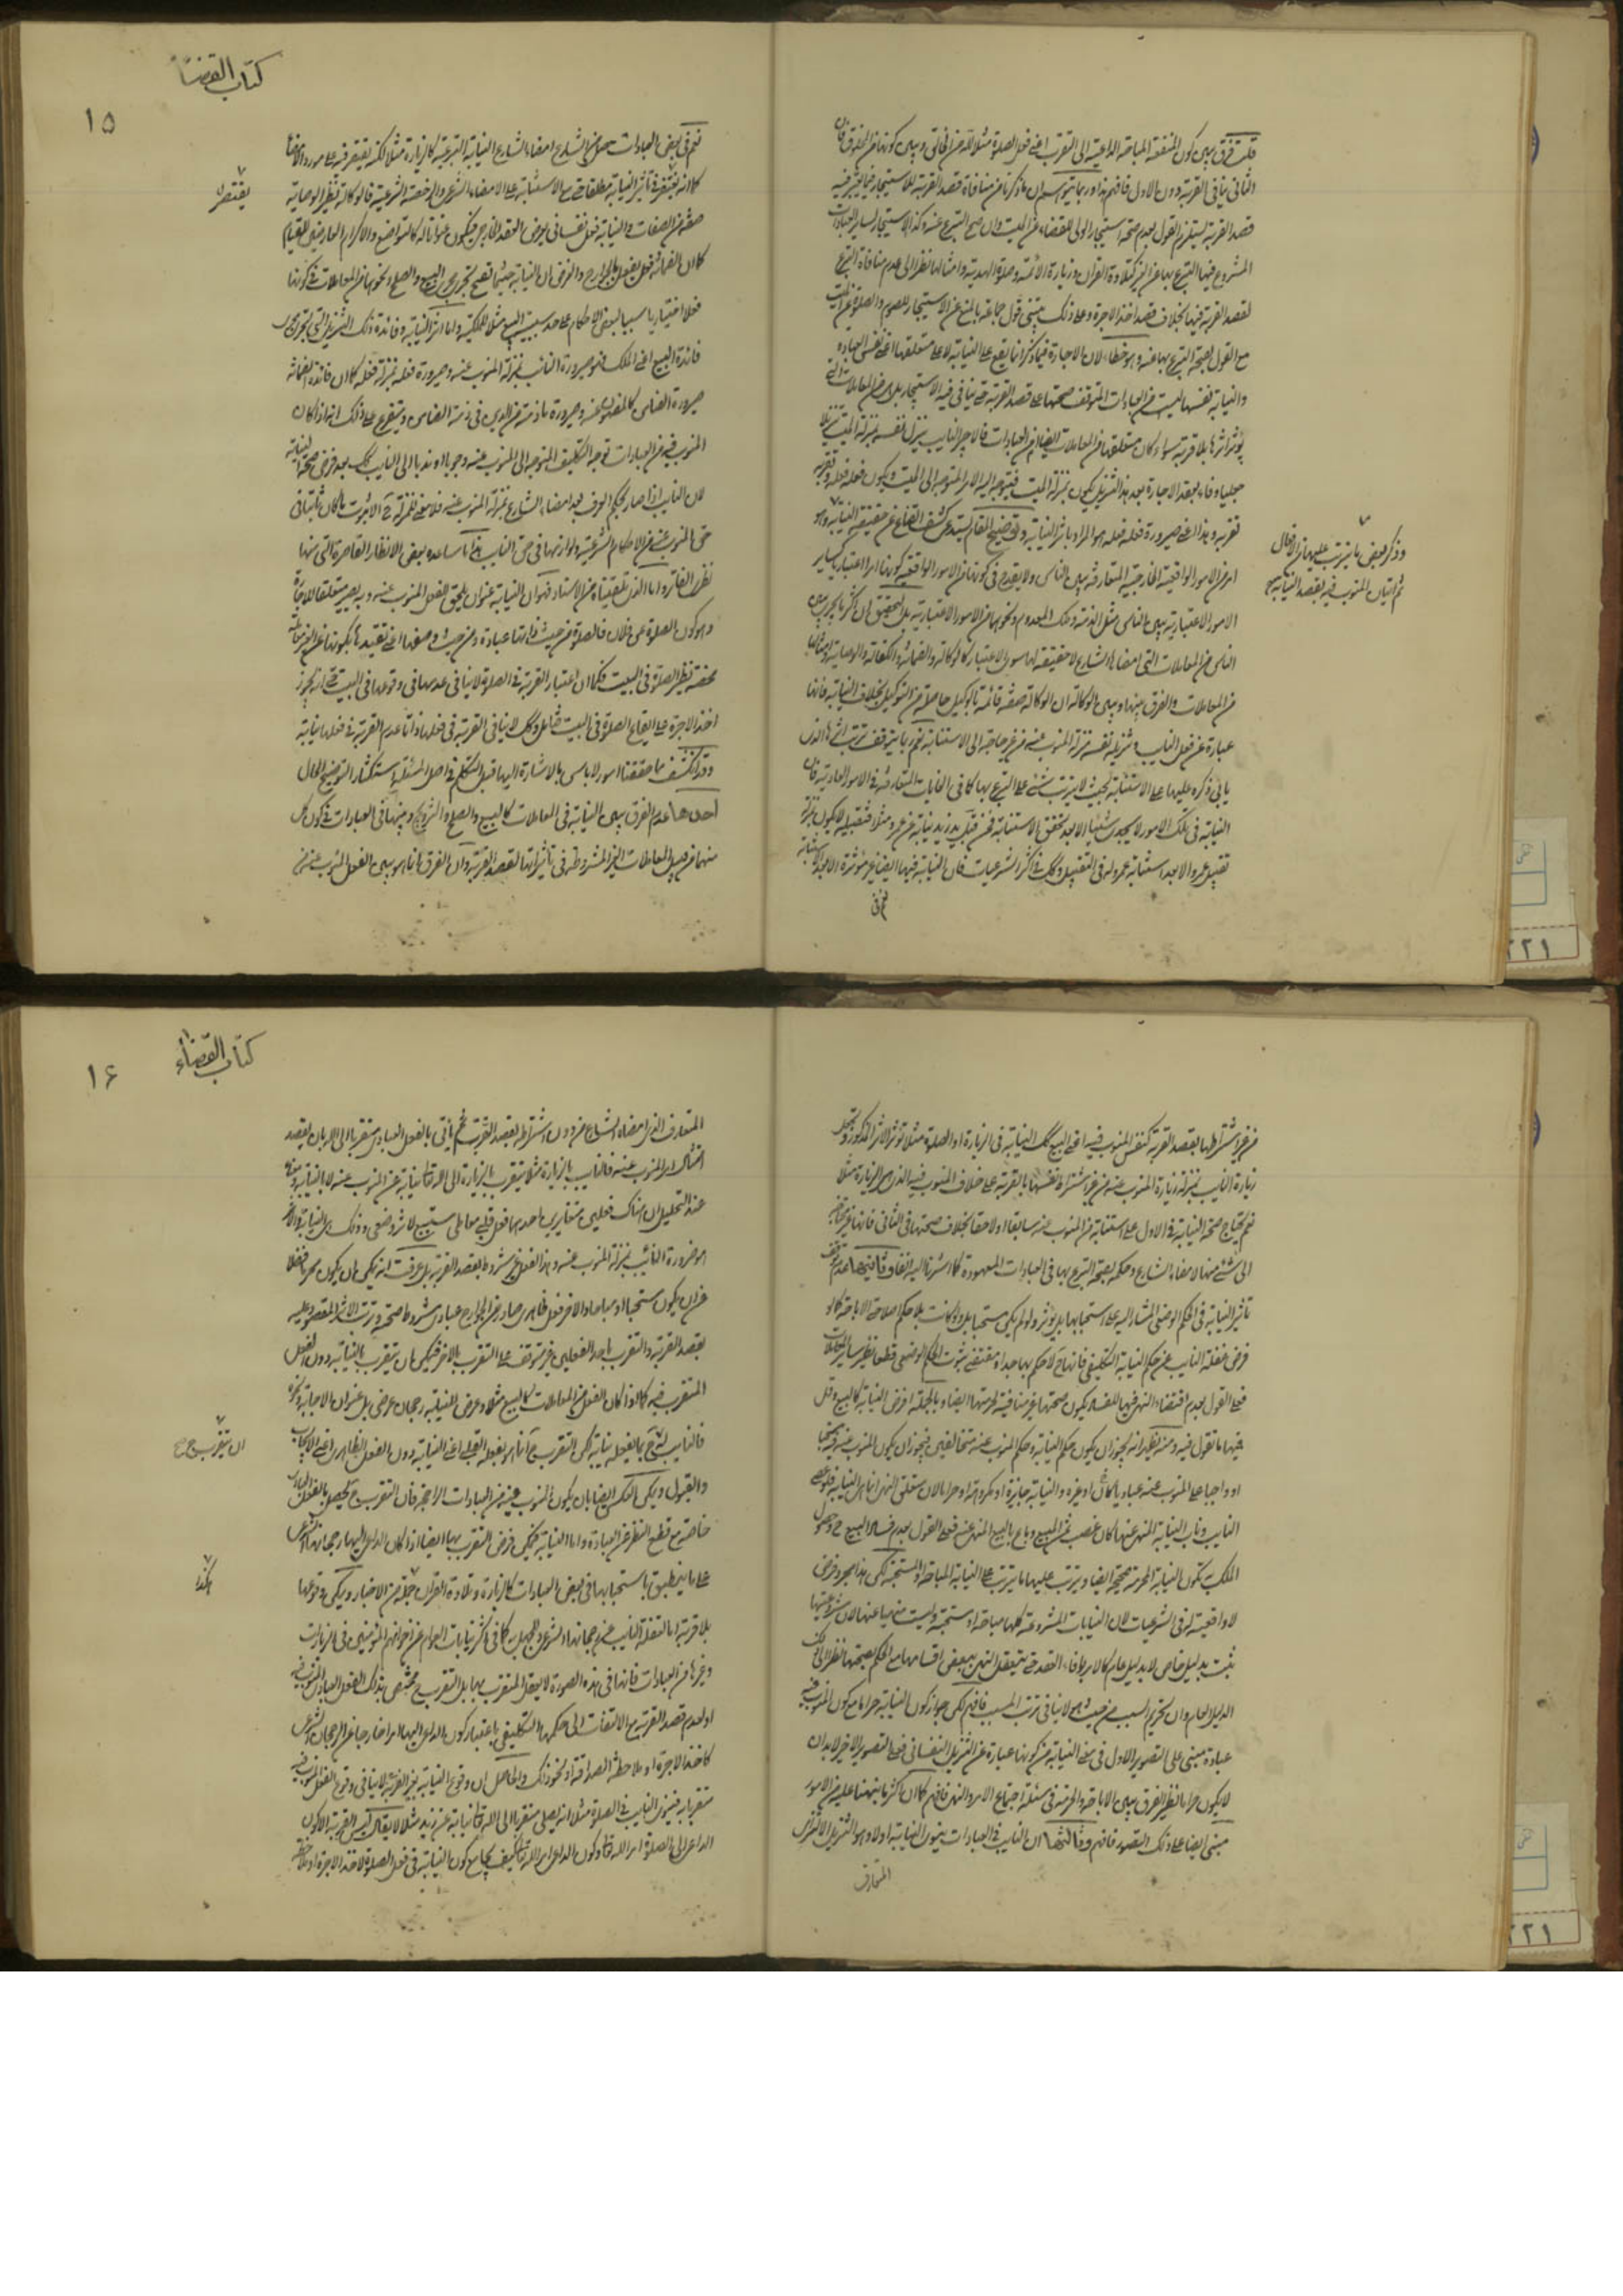 كتاب القضاء
١٥
قلت فرق بين كون المنفعة المباحة الداعية الى التقرب اعنى فعل الصلوة مثلا لله من الخالق وبين كونها من المخلوق فان
الثانى ينافى القربة دون الاول فافهم هذا وربما يتوهم ان ما ذكرنا من منافاة قصد القربة للاستيجار فيما يعتبر فيه
قصد القربة يستلزم القول بعدم صحة استيجار الولى للقضاء عن الميت وان صح التبرع عنه وكذا الاستيجار لساير العبادات
المشروع فيها التبرع بها عن الغير كتلاوة القران وزيارة الائمة وصلوة الهدية وامثالها نظرا الى عدم منافاة التبرع
لقصد القربة فيها بخلاف قصد اخذ الاجرة وعلى ذلك يبتنى قول جماعة بالمنع عن الاستيجار للصوم والصلوة عن الميت
مع القول بصحة التبرع بها عنه وهو خطاء لان الاجارة فيما ذكر انما يقع على النيابة لا على متعلقها اعنى نفس العبادة
والنيابة نفسها ليست من العبادات المتوقف صحتها على قصد القربة حتى ينافى فيه الاستيجار بل هى من المعاملات التى
يؤثر اثرها بلا قربة سواء كان متعلقها من المعاملات ايضا ام من العبادات فالاجير النايب ينزل نفسه بمنزلة الميت تنزيلا
جعليا وفاء بعقد الاجارة وبعد هذا التنزيل يكون بمنزلة الميت فيتوجه اليه الامر المتوجه الى الميت ويكون فعله فعله وتقربه
تقربه وهذا اعنى صيرورة فعله فعله هو المراد باثر النيابة وتوضيح المقام يستدعى كشف القناع عن حقيقة النيابة وهو
امر من الامور الواقعية الخارجية المتعارفة بين الناس ولا يقدح فى كونها من الامور الواقعية كونها امرا اعتباريا كساير
الامور الاعتبارية بين الناس مثل الذمة وملك المعدوم ونحوهما من الامور الاعتبارية بل التحقيق ان اكثر ما يجرى بين
الناس من المعاملات التى امضاها الشارع لا حقيقة لها سوى الاعتبار كالوكالة والضمانة والكفالة والوصاية وامثالها
من المعاملات والفرق بينها وبين الوكالة ان الوكالة صفة قائمة بالوكيل حاصلة من التوكيل بخلاف النيابة فانها
عبارة عن فعل النايب وتنزيله نفسه منزلة المنوب عنه من غير حاجة الى الاستنابة نعم ربما يتوقف ترتب اثرها الذى
ياتى ذكره عليها على الاستنابة بحيث لا يترتب شئ على التبرع بها كما فى الغايات المتعارفة فى الامور العادية فان
النيابة فى تلك الامور لا يجدى شيئا الا بعد تحقق الاستنابة فمن قبل يد زيد نيابة عن عمرو مثلا فتقبيله لا يكون بمنزلة
تقبيل عمرو الا بعد استنابة عمرو له فى التقبيل وكك فى اكثر الشرعيات فان النيابة فيها ايضا غير مؤثرة الا بعد الاستنابة
نعم فى
وذكر بعض ما يترتب عليهما من الافعال
ثم اتيان المنوب فيه بقصد النيابة صح
نعم فى بعض العبادات حصل من الشارع امضاء الشارع النيابة التبرعية كالزيارة مثلا لكنه يقتصر فيه على مورد الامضاء
كما انه يقتصر فى تأثير النيابة مطلقا حتى مع الاستنابة على الامضاء الشرعى والرخصة الشرعية فالوكالة نظير الوصاية
صفة من الصفات والنيابة فعل نفسانى يعرض العقد الخارجى فيكون عنوانا له كالتواضع والاكرام العارضين للقيام
كما ان الضمانة فعل يفعل بالجوارح والغرض ان النيابة حيثما تصح تجرى مجرى البيع والصلح ونحوهما من المعاملات فى كونها
فعلا اختياريا سببا لبعض الاحكام على حد سببية البيع مثلا للملكية واما اثر النيابة وفائدة ذلك التنزيل التى تجرى مجرى
فائدة البيع اعنى الملك فهو صيرورة النائب بمنزلة المنوب عنه وصيرورة فعله بمنزلة فعله كما ان فائدة الضمانة
صيرورة الضامن كالمضمون عنه وصيرورة ما فى ذمته من الدين فى ذمة الضامن ويتفرع على ذلك انه اذا كان
المنوب فيه من العبادات توجه التكليف المتوجه الى المنوب عنه وجوبا او ندبا الى النايب كك بعد فرض صحة النيابة
لان النايب اذا صار بحكم العرف بعد امضاء الشارع بمنزلة المنوب عنه فلا معنى للمنزلة ح الا ثبوت ما كان ثابتا فى
حق المنوب عنه من الاحكام الشرعية ولوازمها فى حق النايب هذا ما يساعده بعض الانظار القاصرة التى منها
نظرى الفاتر واما الذى تلقيناه من الاستاد فهو ان النيابة عنوان يلحق الفعل المنوب عنه وبه يصير متعلقا للاجارة
وهو كون الصلوة عن فلان فالصلوة من حيث ذاتها عبادة ومن حيث وصفها اعنى تقييدها بكونها عن الغير معاملة
محضة نظير الصلوة فى البيت فكما ان اعتبار القربة فى الصلوة لا ينافى عدمها فى وقوعها فى البيت حتى انه يجوز
اخذ الاجرة على ايقاع الصلوة فى البيت فتأمل وكك لا ينافى القربة فى فعلها ذاتا عدم القربة فى فعلها نيابة
وقد انكشف مما حققنا امور لا باس بالاشارة اليها قبل التكلم فى اصل المسئلة استكثارا لتوضيح الحال
احدها عدم الفرق بين النيابة فى المعاملات كالبيع والصلح والتزويج وبينها فى العبادات فى كون كل
منهما من قبيل المعاملات الغير المشروطة فى تأثيراتها لقصد القربة وان الفرق انما هو بين الفعل المنوب عنه
يقتصر
كتاب القضاء
١٦
من غير اشتراطها بقصد القربة كنفس المنوب فيه اعنى البيع كك النيابة فى الزيارة او الصلوة مثلا تؤثر الاثر المذكور وتجعل
زيارة النايب بمنزلة زيارة المنوب عنه من غير اشتراط نفسها بالقربة على خلاف المنوب فيه الذى هو الزيارة مثلا
نعم يحتاج صحة النيابة فى الاول على استنابة من المنوب عنه سابقا او لاحقا بخلاف صحتها فى الثانى فانها غير محتاجة
الى شئ منهما لامضاء الشارع وحكمه بصحة التبرع بها فى العبادات المعهودة كما اشرنا اليه انفا وثانيها عدم توقف
تأثير النيابة فى الحكم الوضعى المشار اليه على استحبابها بل يؤثر ولو لم يكن مستحبا بل ولو كانت بلا حكم اصلا حتى الاباحة كما لو
فرض غفلة النايب عن حكم النيابة التكليفى فانها ح لا حكم بها جدا ومقتضى ثبوت الحكم الوضعى قطعا نظير ساير المعاملات
فعلى القول بعدم اقتضاء النهى فيها للفساد يكون صحتها غير منافية لحرمتها ايضا وبالجملة افرض النيابة كالبيع وقل
فيها ما تقول فيه ومنه يظهر انه يجوز ان يكون حكم النيابة وحكم المنوب عنه متخالفين فيجوز ان يكون المنوب عنه فيه مستحبا
او واجبا على المنوب عنه عباديا كان او غيره والنيابة جايزة او مكروهة او حراما لان متعلق النهى انما هى النيابة فلو عصى
النايب وناب النيابة المنهى عنها كان كمن غصب ثمن المبيع وباع بالبيع المنهى عنه فعلى القول بعدم فساد البيع ح وحصول
الملكية تكون النيابة المحرمة صحيحة ايضا ويترتب عليها ما يترتب على النيابة المباحة او المستحبة لكن هذا مجرد فرض
لا واقعية له فى الشرعيات لان النيابات المشروعة كلها مباحة او مستحبة وليست منهيا عنها لان مشروعيتها
ثبت بدليل خاص لا بدليل عام كالامر بالوفاء بالعقد حتى يتعقل النهى ببعض اقسامها مع الحكم بصحتها نظرا الى ذلك
الدليل العام وان تحريم السبب من حيث هو لا ينافى ترتب المسبب فافهم لكن جواز كون النيابة حراما مع كون المنوب فيه
عبادة مبنى على التصوير الاول فى معنى النيابة من كونها عبارة عن التنزيل النفسانى فعلى التصوير الاخير لا بد ان
لا يكون حراما نظير الفرق بين الاباحة والحرمة فى مسئلة اجتماع الامر والنهى فافهم كما ان اكثر ما نبهنا عليه من الامور
مبنى ايضا على ذلك التصوير فافهم وثالثها ان النايب فى العبادات ينوى النيابة اولا وهو التنزيل الاقتراحى
المتعارف
المتعارف الذى امضاه الشارع من دون اشتراطه بقصد القربة ثم يأتى بالفعل العبادى متقربا الى الله بان يقصد
امتثال امر المنوب عنه فالنايب بالزيارة مثلا يتقرب بالزيارة الى الله تعالى نيابة عن المنوب عنه لا بالنيابة ومعناه
عند التحليل ان هناك فعلين متغايرين احدهما فعل قلبى معاملى مستتبع لاثر وضعى وذلك هى النيابة والاثر
هو ضرورة النائب بمنزلة المنوب عنه وهذا الفعل غير مشروط بقصد القربة بل عرفت انه يمكن ان يكون محرما فضلا
عن ان يكون مستحبا او مباحا والاخر فعل ظاهرى صادر عن الجوارح عبادى مشروط صحته وترتب الاثر المقصود عليه
بقصد القربة والتقرب باحد الفعلين غير متوقف على التقرب بالاخر فيمكن ان يتقرب بالنيابة دون الفعل
المتقرب فيه كما اذا كان الفعل من المعاملات كالبيع مثلا وعرض للنيابة رجحان عرضى بل عنوان الاجابة ونحوه
فالنايب ح بما يفعله نيابة لكن التقرب ح انما هو بفعله القلبى اعنى النيابة دون الفعل الظاهرى اعنى الايجاب
والقبول ويمكن العكس ايضا بان يكون المنوب فيه من العبادات الراجحة فان التقرب ح يحصل بالفعل العبادى
خاصة مع قطع النظر عن العبادة واما النيابة فيمكن فرض التقرب بها ايضا اذا كان الداعى اليها رجحانها الشرعى
على ما ينطبق باستحبابها فى بعض العبادات كالزيارة وتلاوة القران جملة من الاخبار ويمكن وقوعها
بلا قربة اما لغفلة النايب عن رجحانها او مشروعيتها كما فى اكثر نيابات العوام عن اخوانهم المؤمنين فى الزيارات
وغيرها من العبادات فانها فى هذه الصورة لا يعقل التقرب بها بل التقرب ح مختص بذلك الفعل العبادى المنوب فيه
او لعدم قصد القربة مع الالتفات الى حكمها التكليفى باعتبار كون الداعى اليها امرا خارجا عن الرجحان الشرعى
كاخذ الاجرة او ملاحظة الصداقة او نحو ذلك والحاصل ان وقوع النيابة بغير القربة لا ينافى وقوع الفعل المنوب فيه
متقربا به فينوى النايب فى الصلوة مثلا انه يصلى متقربا الى الله تعالى نيابة عن زيد مثلا لا يقال كيف القربة الا كون
الداعى الى الصلوة امر الله تعالى وكون الداعى امر الله تعالى كيف يجامع كون النيابة فى فعل الصلوة لاخذ الاجرة او ملاحظة
ان يتقرب ح صح
هكذا
٢٢١